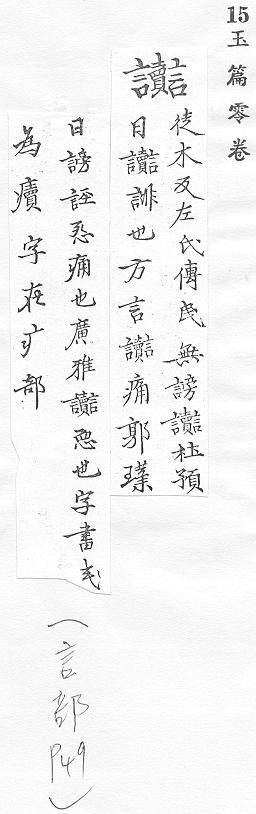 15玉篇零卷
讟徒木反左氏傳民無謗讟杜預
曰讟誹也方言讟痛郭璞
曰謗誣怨痛也廣雅讟惡也字書或
為字在疒部
(言部P49)